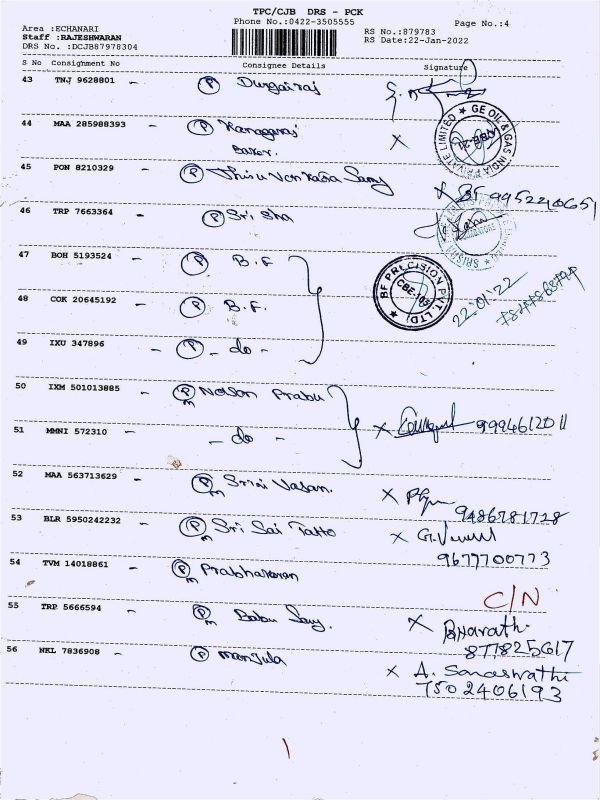 TPC/CJB DRS - PCK
Phone No.:0422-3505555
Page No.:4
Area :ECHANARI
Staff :RAJESHWARAN
DRS No. :DCJB87978304
RS No.:879783
RS Date:22-Jan-2022
S No Consignment No Consignee Details Signature
43 TNJ 9628801 - P Durgairaj
44 MAA 285988393 - P Kanagaraj X
Baker.
GE OIL & GAS INDIA PRIVATE LIMITED
45 PON 8210329 - P Thiru Venkata Samy X 9952240651
46 TRP 7663364 - P Sri Sha
47 BOH 5193524 - P B.F
BF PRECISION PVT. LTD.
CBE-103
22.01.22
48 COK 20645192 - P B.F.
49 IXU 347896 - P - do -
50 IXM 501013885 - Pm Nelson Prabu
X 9994612011
51 MMNI 572310 - - do -
52 MAA 563713629 - Pm Srini Vasan. X
9486781728
53 BLR 5950242232 - Pm Sri Sai Tatto X G.
9677700773
54 TVM 14018861 - Pm Prabhakaran
C/N
55 TRP 5666594 - Pm Babu Samy. X Bharath.
877825617
56 NKL 7836908 - P Manjula X A. Saraswathi
7502406193